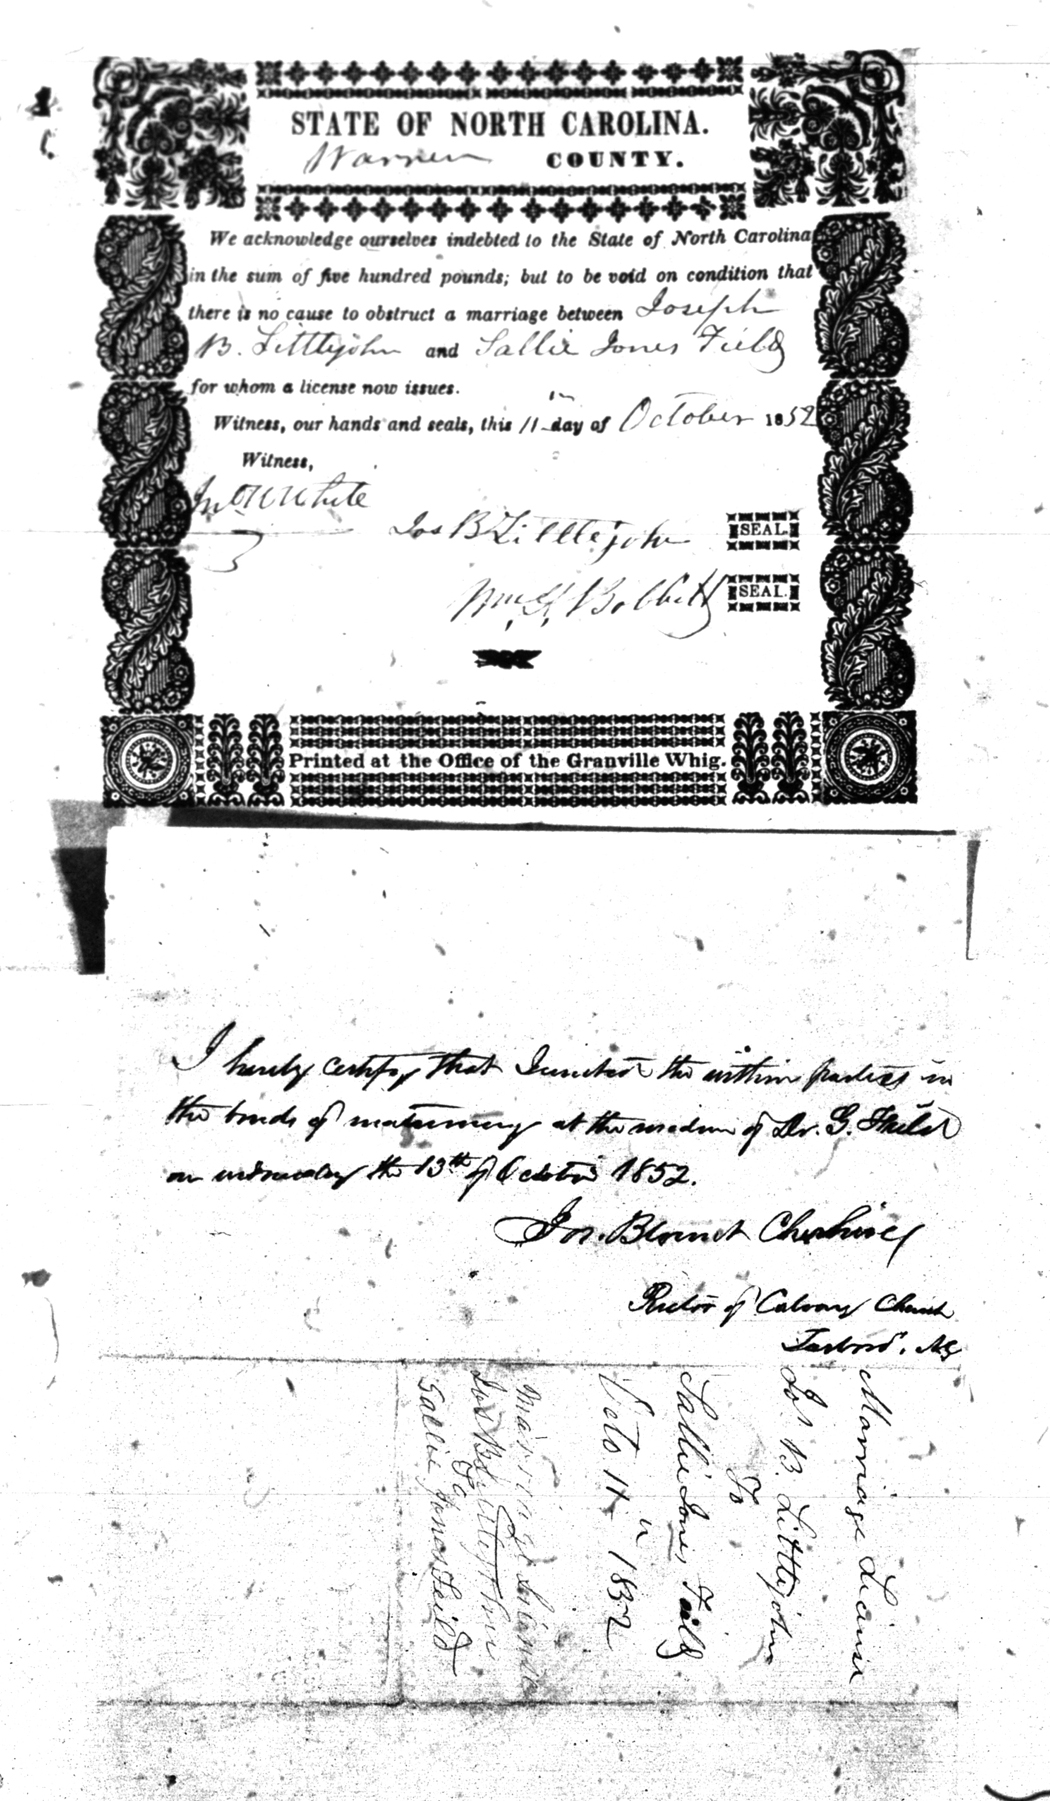 STATE OF NORTH CAROLINA.
Warren COUNTY.
We acknowledge ourselves indebted to the State of North Carolina
in the sum of five hundred pounds; but to be void on condition that
there is no cause to obstruct a marriage between Joseph
B. Littlejohn and Sallie Jones Feild
for whom a license now issues.
Witness, our hands and seals, this 11 day of October 1852
Witness,
White
Jos B Littlejohn SEAL.
Wm Bobbitt SEAL.
Printed at the Office of the Granville Whig.
I hereby certify that I united the within parties in
the bonds of matrimony at the residence of Dr. G. Feild
on wednesday the 13th of October 1852.
Jos. Blount Cheshire
Rector of Calvary Church
Tarboro'. NC
Marriage License
Jos B. Littlejohn
To
Sallie Jones Feild
Octo 11 1852
Marriage License
Jos B Littlejohn
To
Sallie Jones Feild